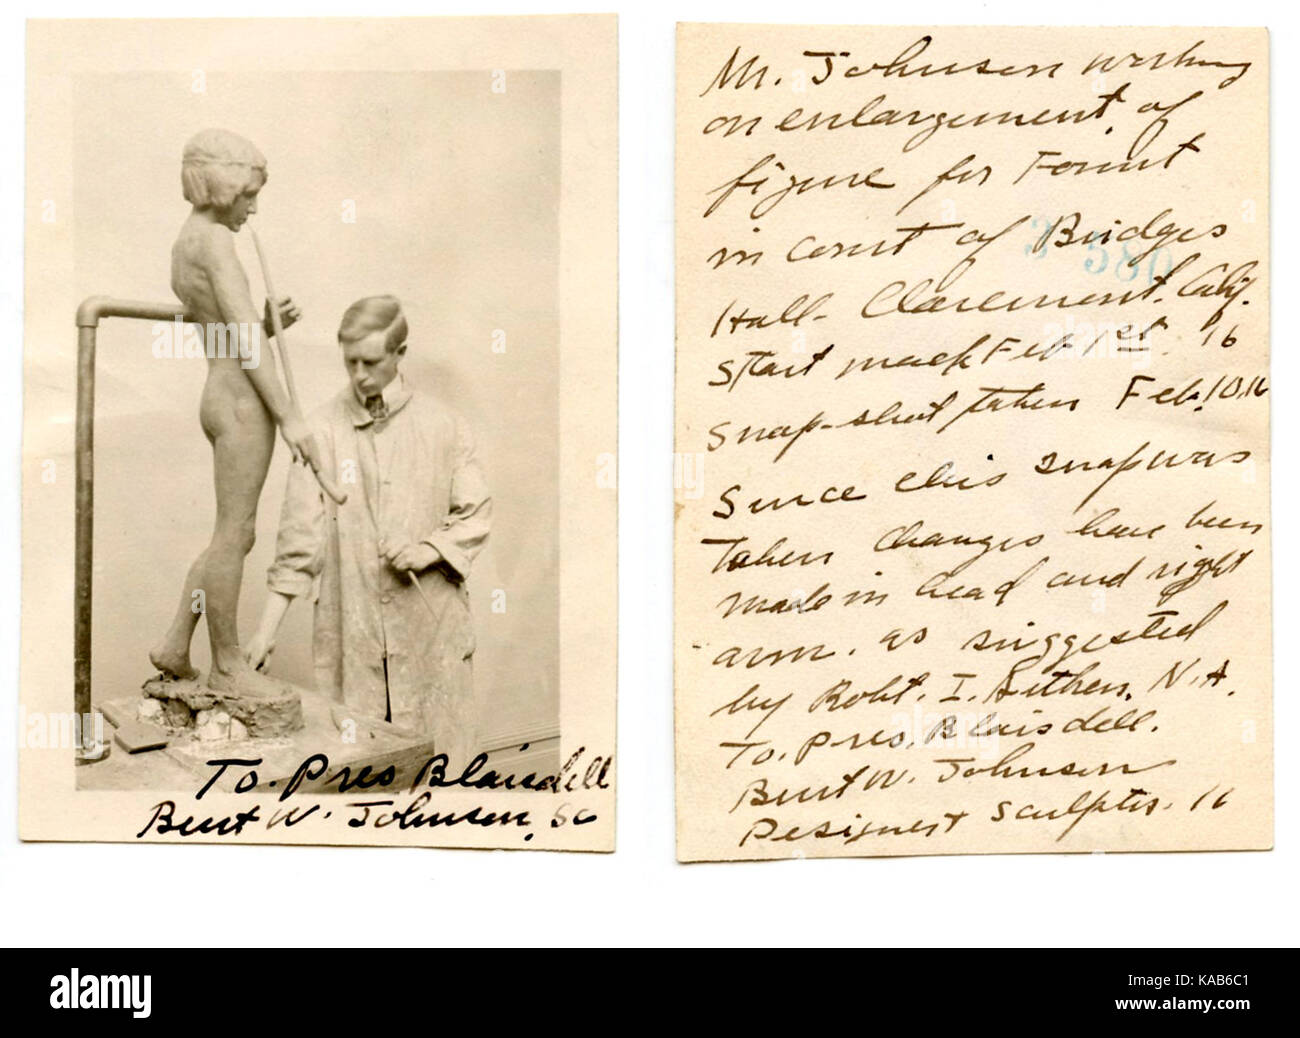 To. Pres Blaisdell
Burt W. Johnson, Sc
Mr. Johnson working
on enlargement of
figure for Fount
in court of Bridges
Hall - Claremont. Calif.
Start made Feb 1st. 16
Snap-shot taken Feb. 10, 16
Since this snap was
taken changes have been
made in head and right
arm. as suggested
by Robt. I. Aitken. N.A.
To. Pres. Blaisdell.
Burt W. Johnson
Designer + Sculptor. 16
alamy
Image ID: KAB6C1
www.alamy.com